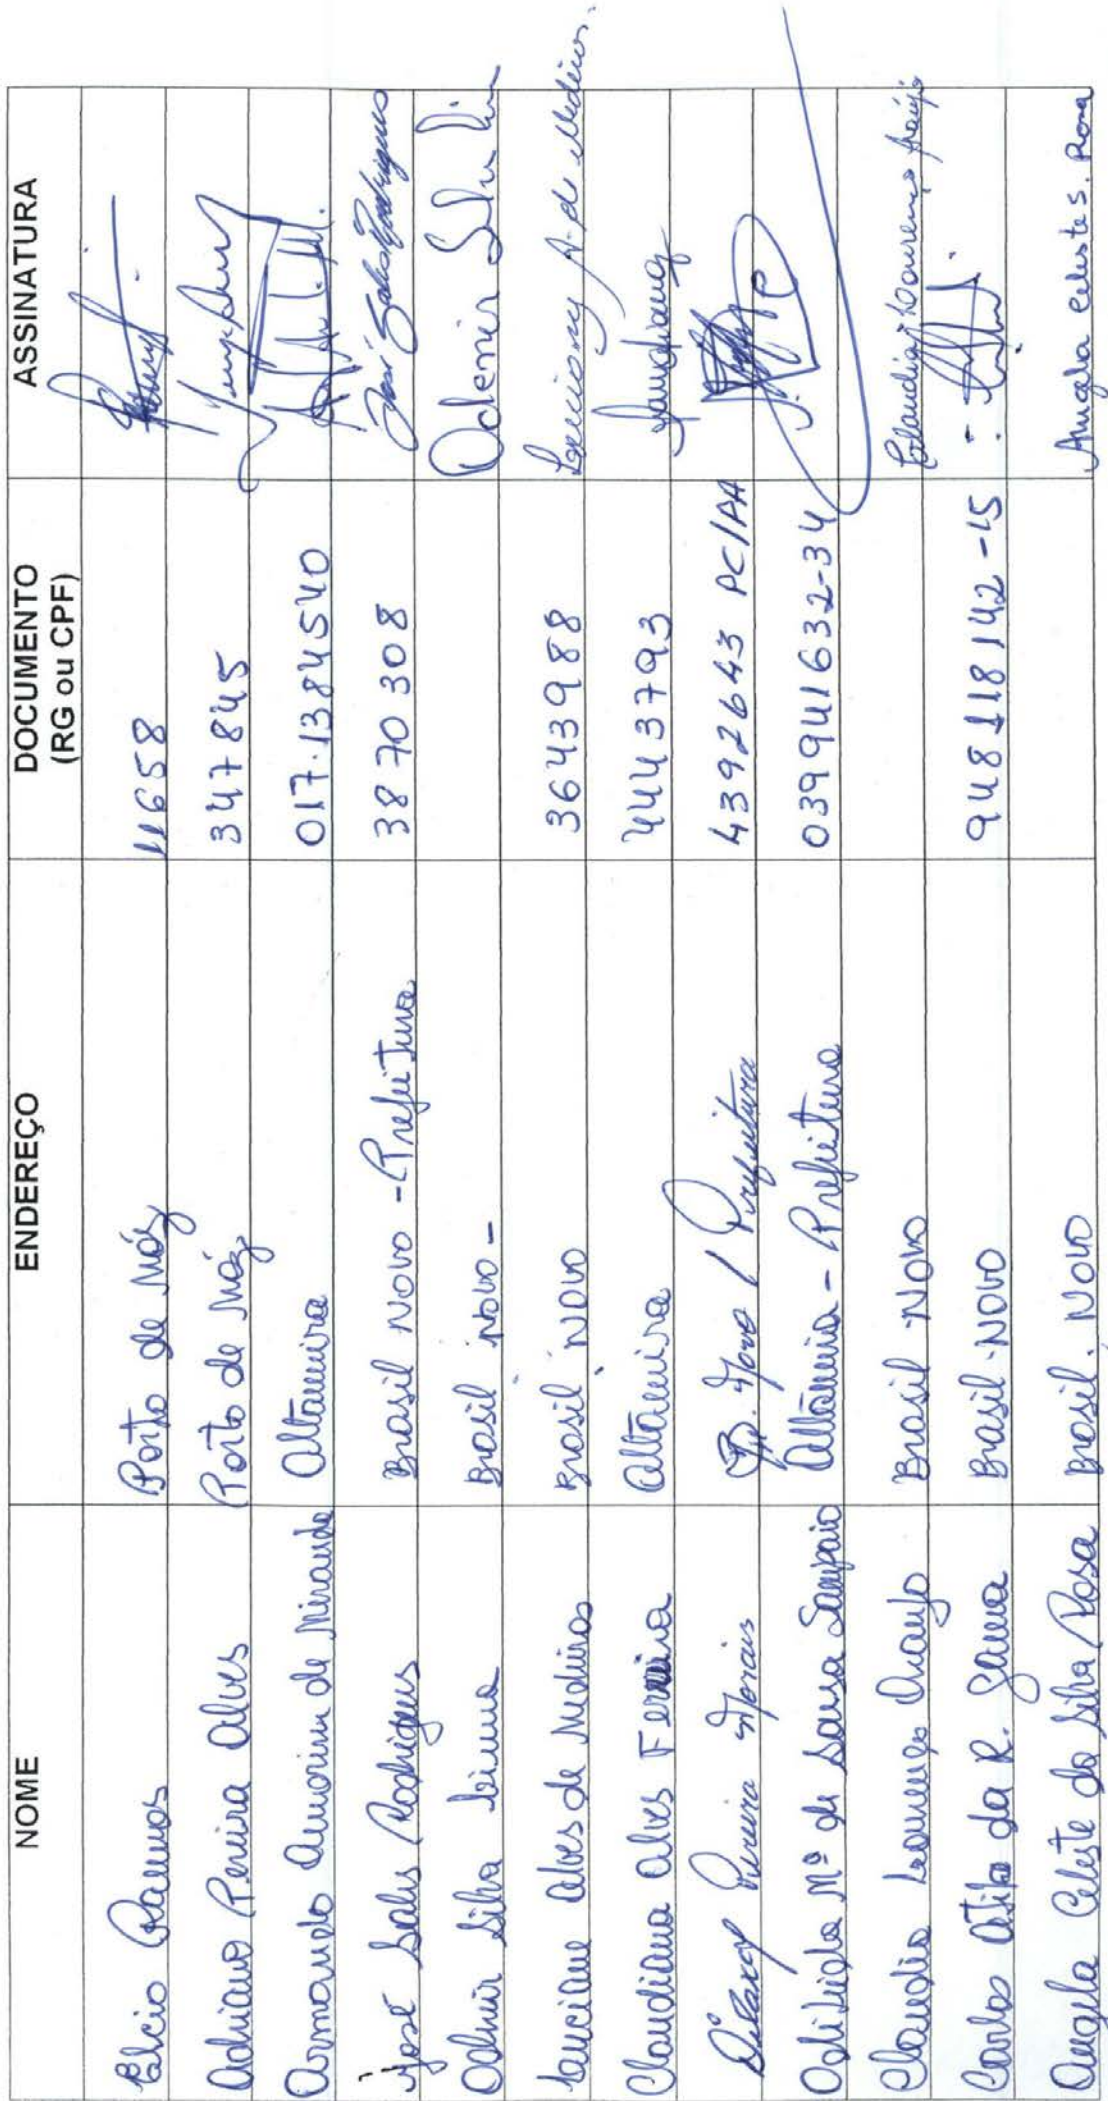 NOME ENDEREÇO DOCUMENTO (RG ou CPF) ASSINATURA
Elcio Ramos Porto de Móz 11658
Adriano Pereira Alves Porto de Móz 347845
Armando Amorim de Miranda Altamira 017.1384540
José Sales Rodrigues Brasil Novo - Prefeitura 3870308 José Sales Rodrigues
Odenir Silva Lima Brasil Novo - Odenir Silva Lima
Luciane Alves de Medeiros Brasil Novo 3643988 Luciany A. de Medeiros.
Claudiana Alves Ferreira Altamira 4443793
Pereira Morais B. Novo / Prefeitura 4392643 PC/PA
Mª de Sousa Sampaio Altamira - Prefeitura 039941632-34
Claudia Lourenço Araujo Brasil Novo Claudia Lourenço Araújo
Carlos Atila da R. Gama Brasil Novo 948118142-15
Angela Celeste da Silva Rosa Brasil Novo Angela Celeste S. Rosa